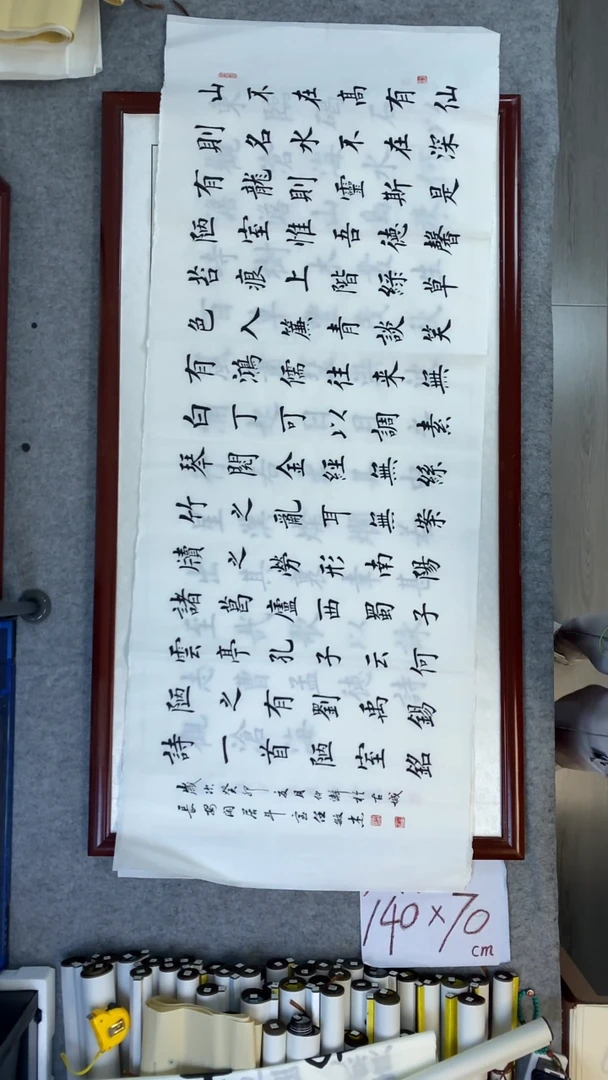 山不在髙有仙
則名水不在深
有龍則靈斯是
陋室惟吾德馨
苔痕上階綠草
色入簾青談笑
有鴻儒往来無
白丁可以調素
琴閱金經無絲
竹之亂耳無案
牘之勞形南陽
諸葛廬西蜀子
雲亭孔子云何
陋之有劉禹錫
詩一首陋室銘
歲次癸卯月於古城
長安任敏杰
140×70
cm